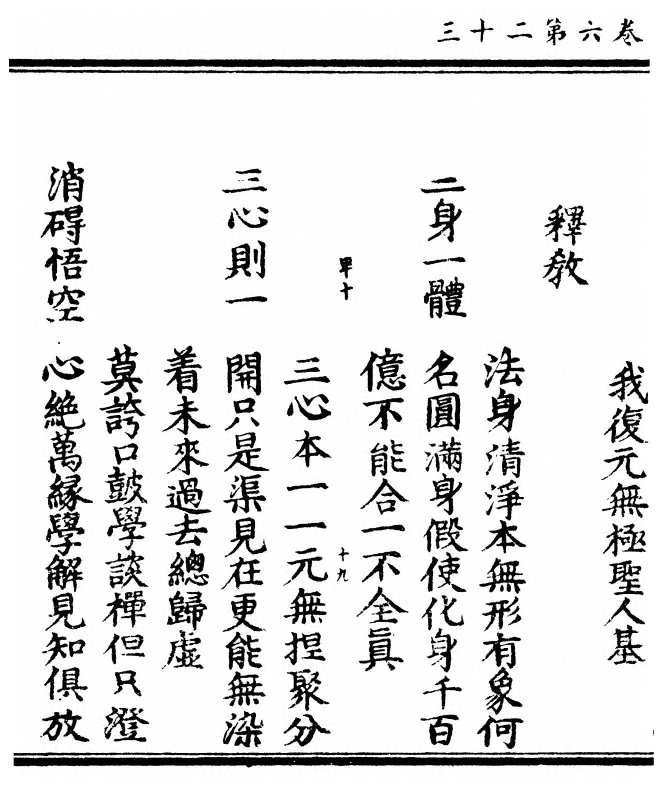 卷六第二十三
我復元無極聖人基
釋教
法身清淨本無形有象何
二身一體　名圓滿身假使化身千百
億不能合一不全眞
單十　十九
三心本一一元無捏聚分
三心則一　開只是渠見在更能無染
着未來過去總歸虛
莫誇口鼓學談禪但只澄
消碍悟空　心絶萬緣學解見知俱放